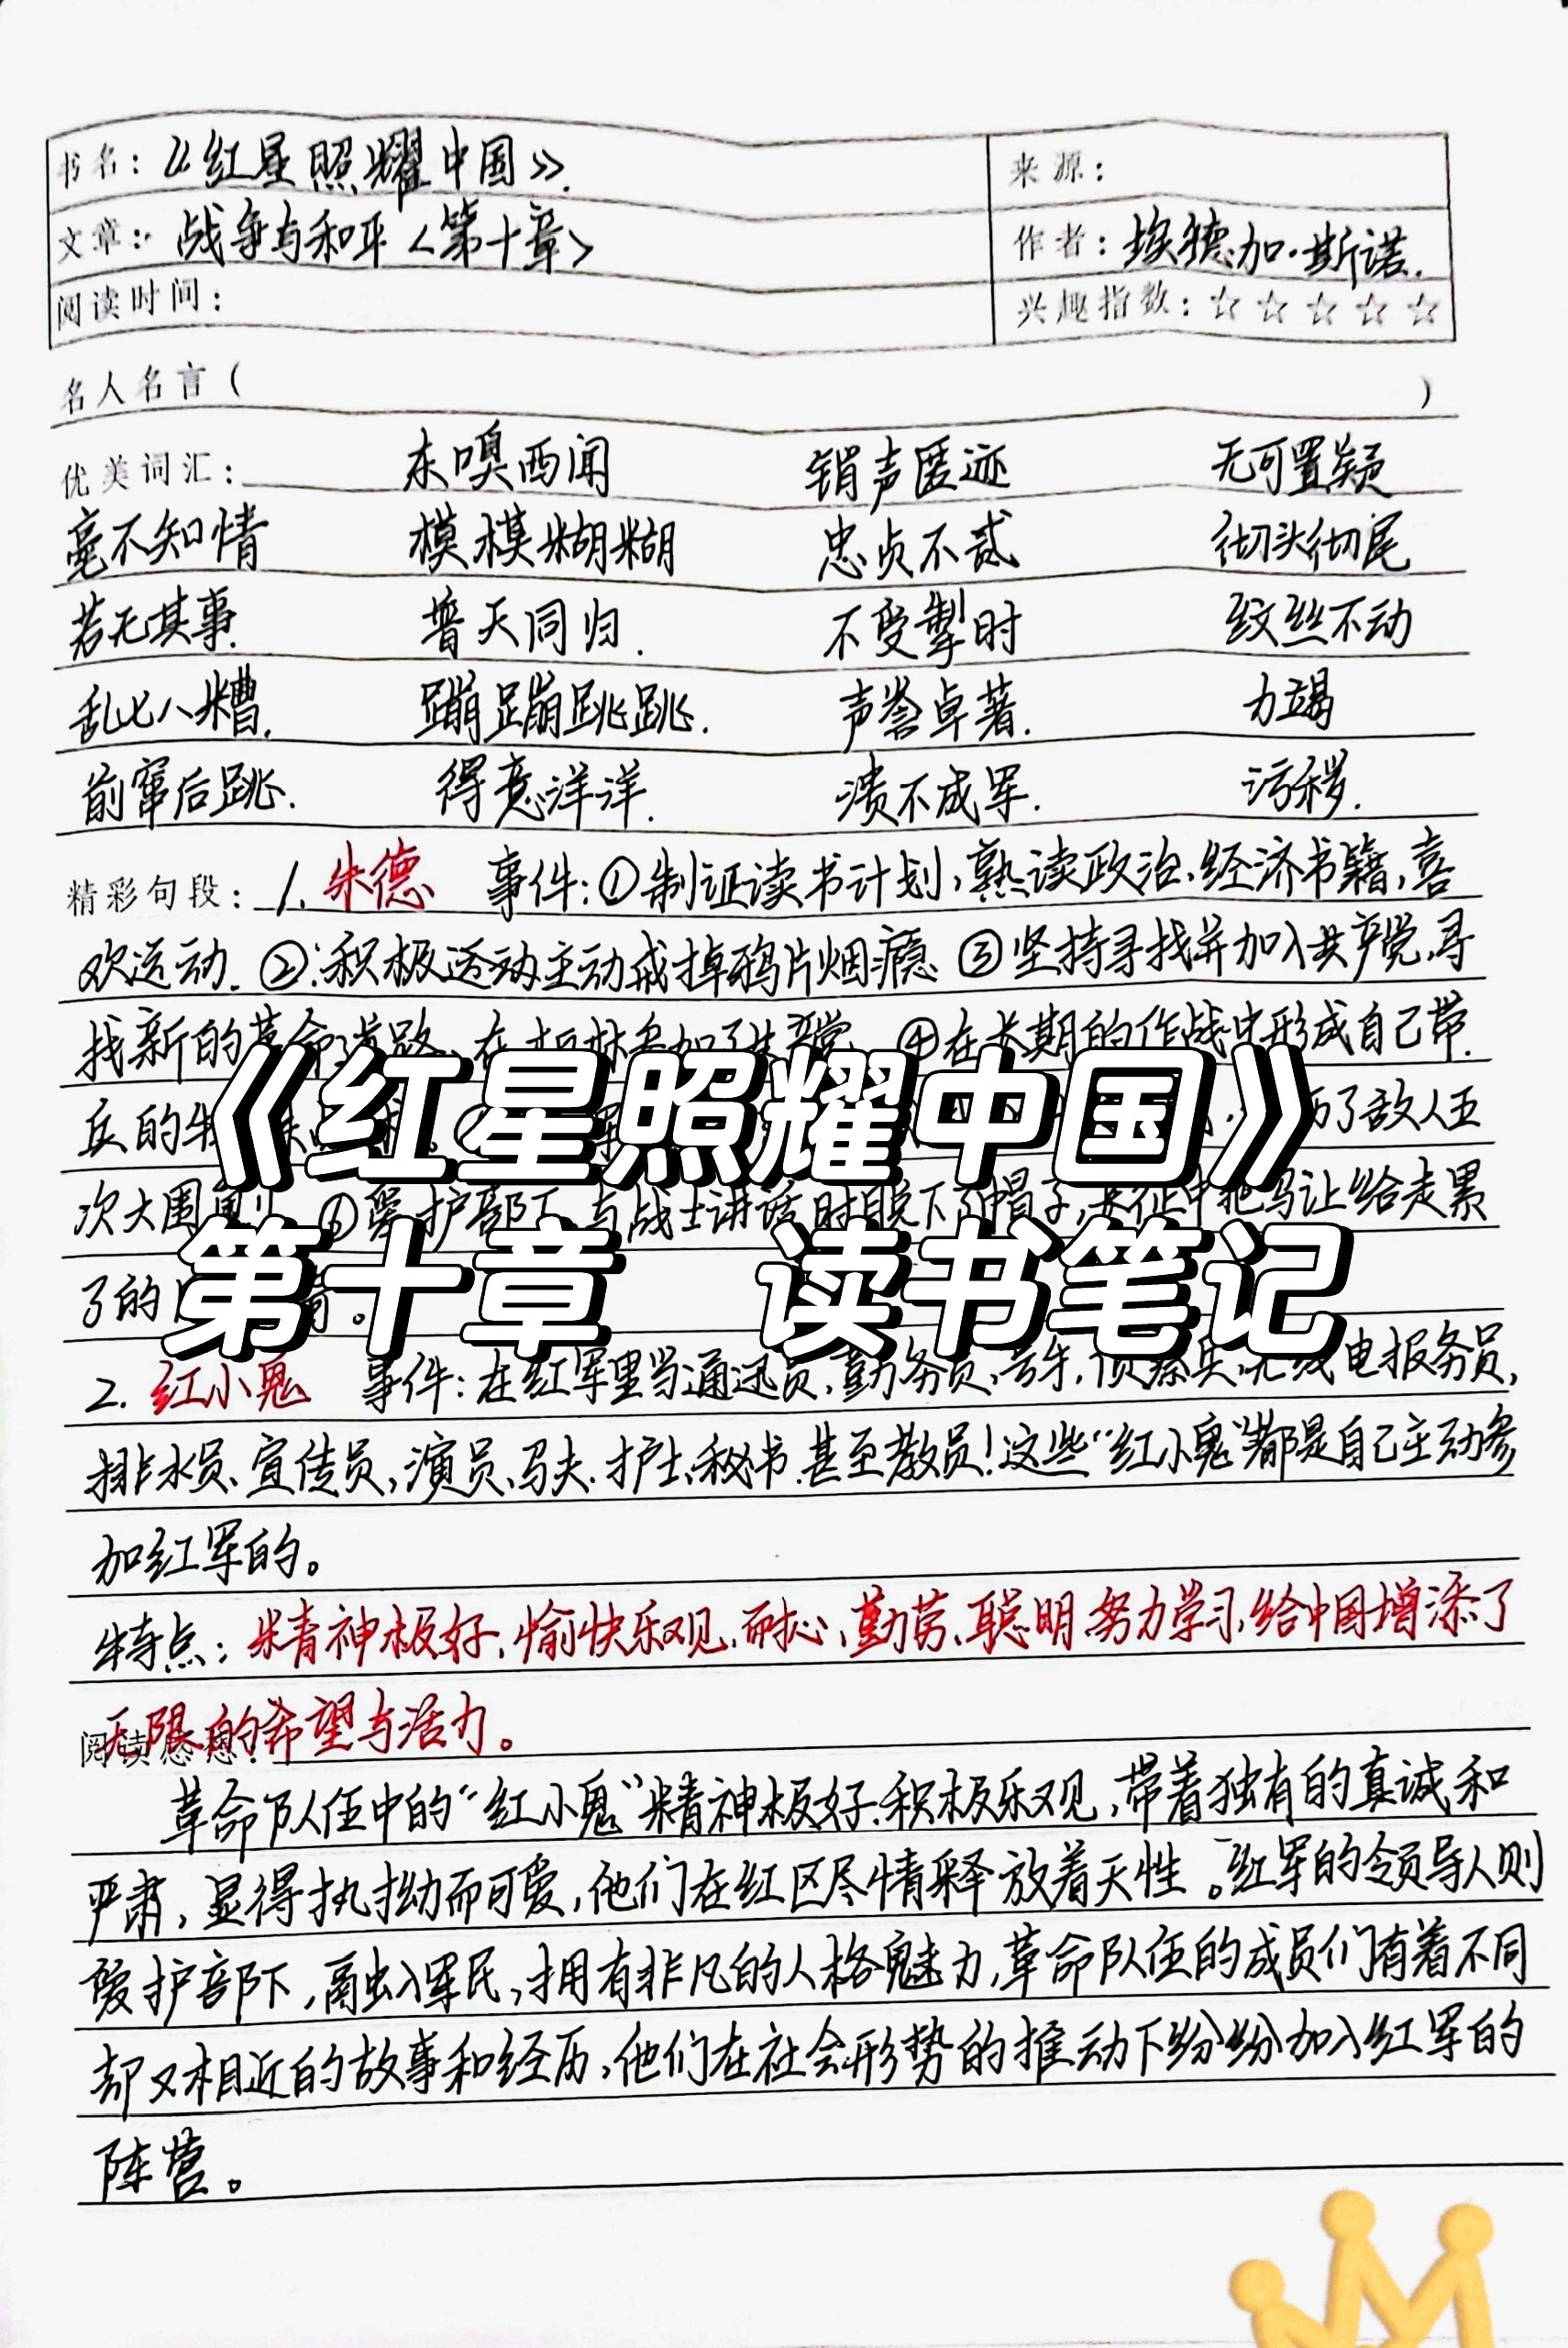 书名：《红星照耀中国》.
来源：
文章：战争与和平<第十章>
作者：埃德加·斯诺.
阅读时间：
兴趣指数：☆☆☆☆☆
名人名言（ ）
优美词汇： 东嗅西闻 销声匿迹 无可置疑
毫不知情 模模糊糊 忠贞不贰 彻头彻尾
若无其事. 普天同归. 不受掣时 纹丝不动
乱七八糟. 蹦蹦跳跳. 声誉卓著. 力竭
前窜后跳. 得意洋洋. 溃不成军. 污秽.
精彩句段：1. 朱德 事件：①制证读书计划，熟读政治、经济书籍，喜
欢运动. ②：积极运动主动戒掉鸦片烟瘾 ③坚持寻找并加入共产党，寻
找新的革命道路，在柏林参加了共产党 ④在长期的作战中形成自己带
兵的 了敌人五
次大围剿 爱护部下，与战士讲话时脱下了帽子，长征中把马让给走累
了的
《红星照耀中国》
第十章 读书笔记
2. 红小鬼 事件：在红军里当通迅员、勤务员、号手、侦察兵、无线电报务员，
排水员、宣传员，演员、马夫、护士、秘书.甚至教员！这些“红小鬼”都是自己主动参
加红军的。
特点：精神极好，愉快乐观，耐心，勤劳、聪明，努力学习，给中国增添了
无限的希望与活力。
阅读感想：
革命队伍中的“红小鬼”精神极好.积极乐观，带着独有的真诚和
严肃，显得执拗而可爱，他们在红区尽情释放着天性。红军的领导人则
爱护部下，融入军民，拥有非凡的人格魅力，革命队伍的成员们有着不同
却又相近的故事和经历，他们在社会形势的推动下纷纷加入红军的
阵营。